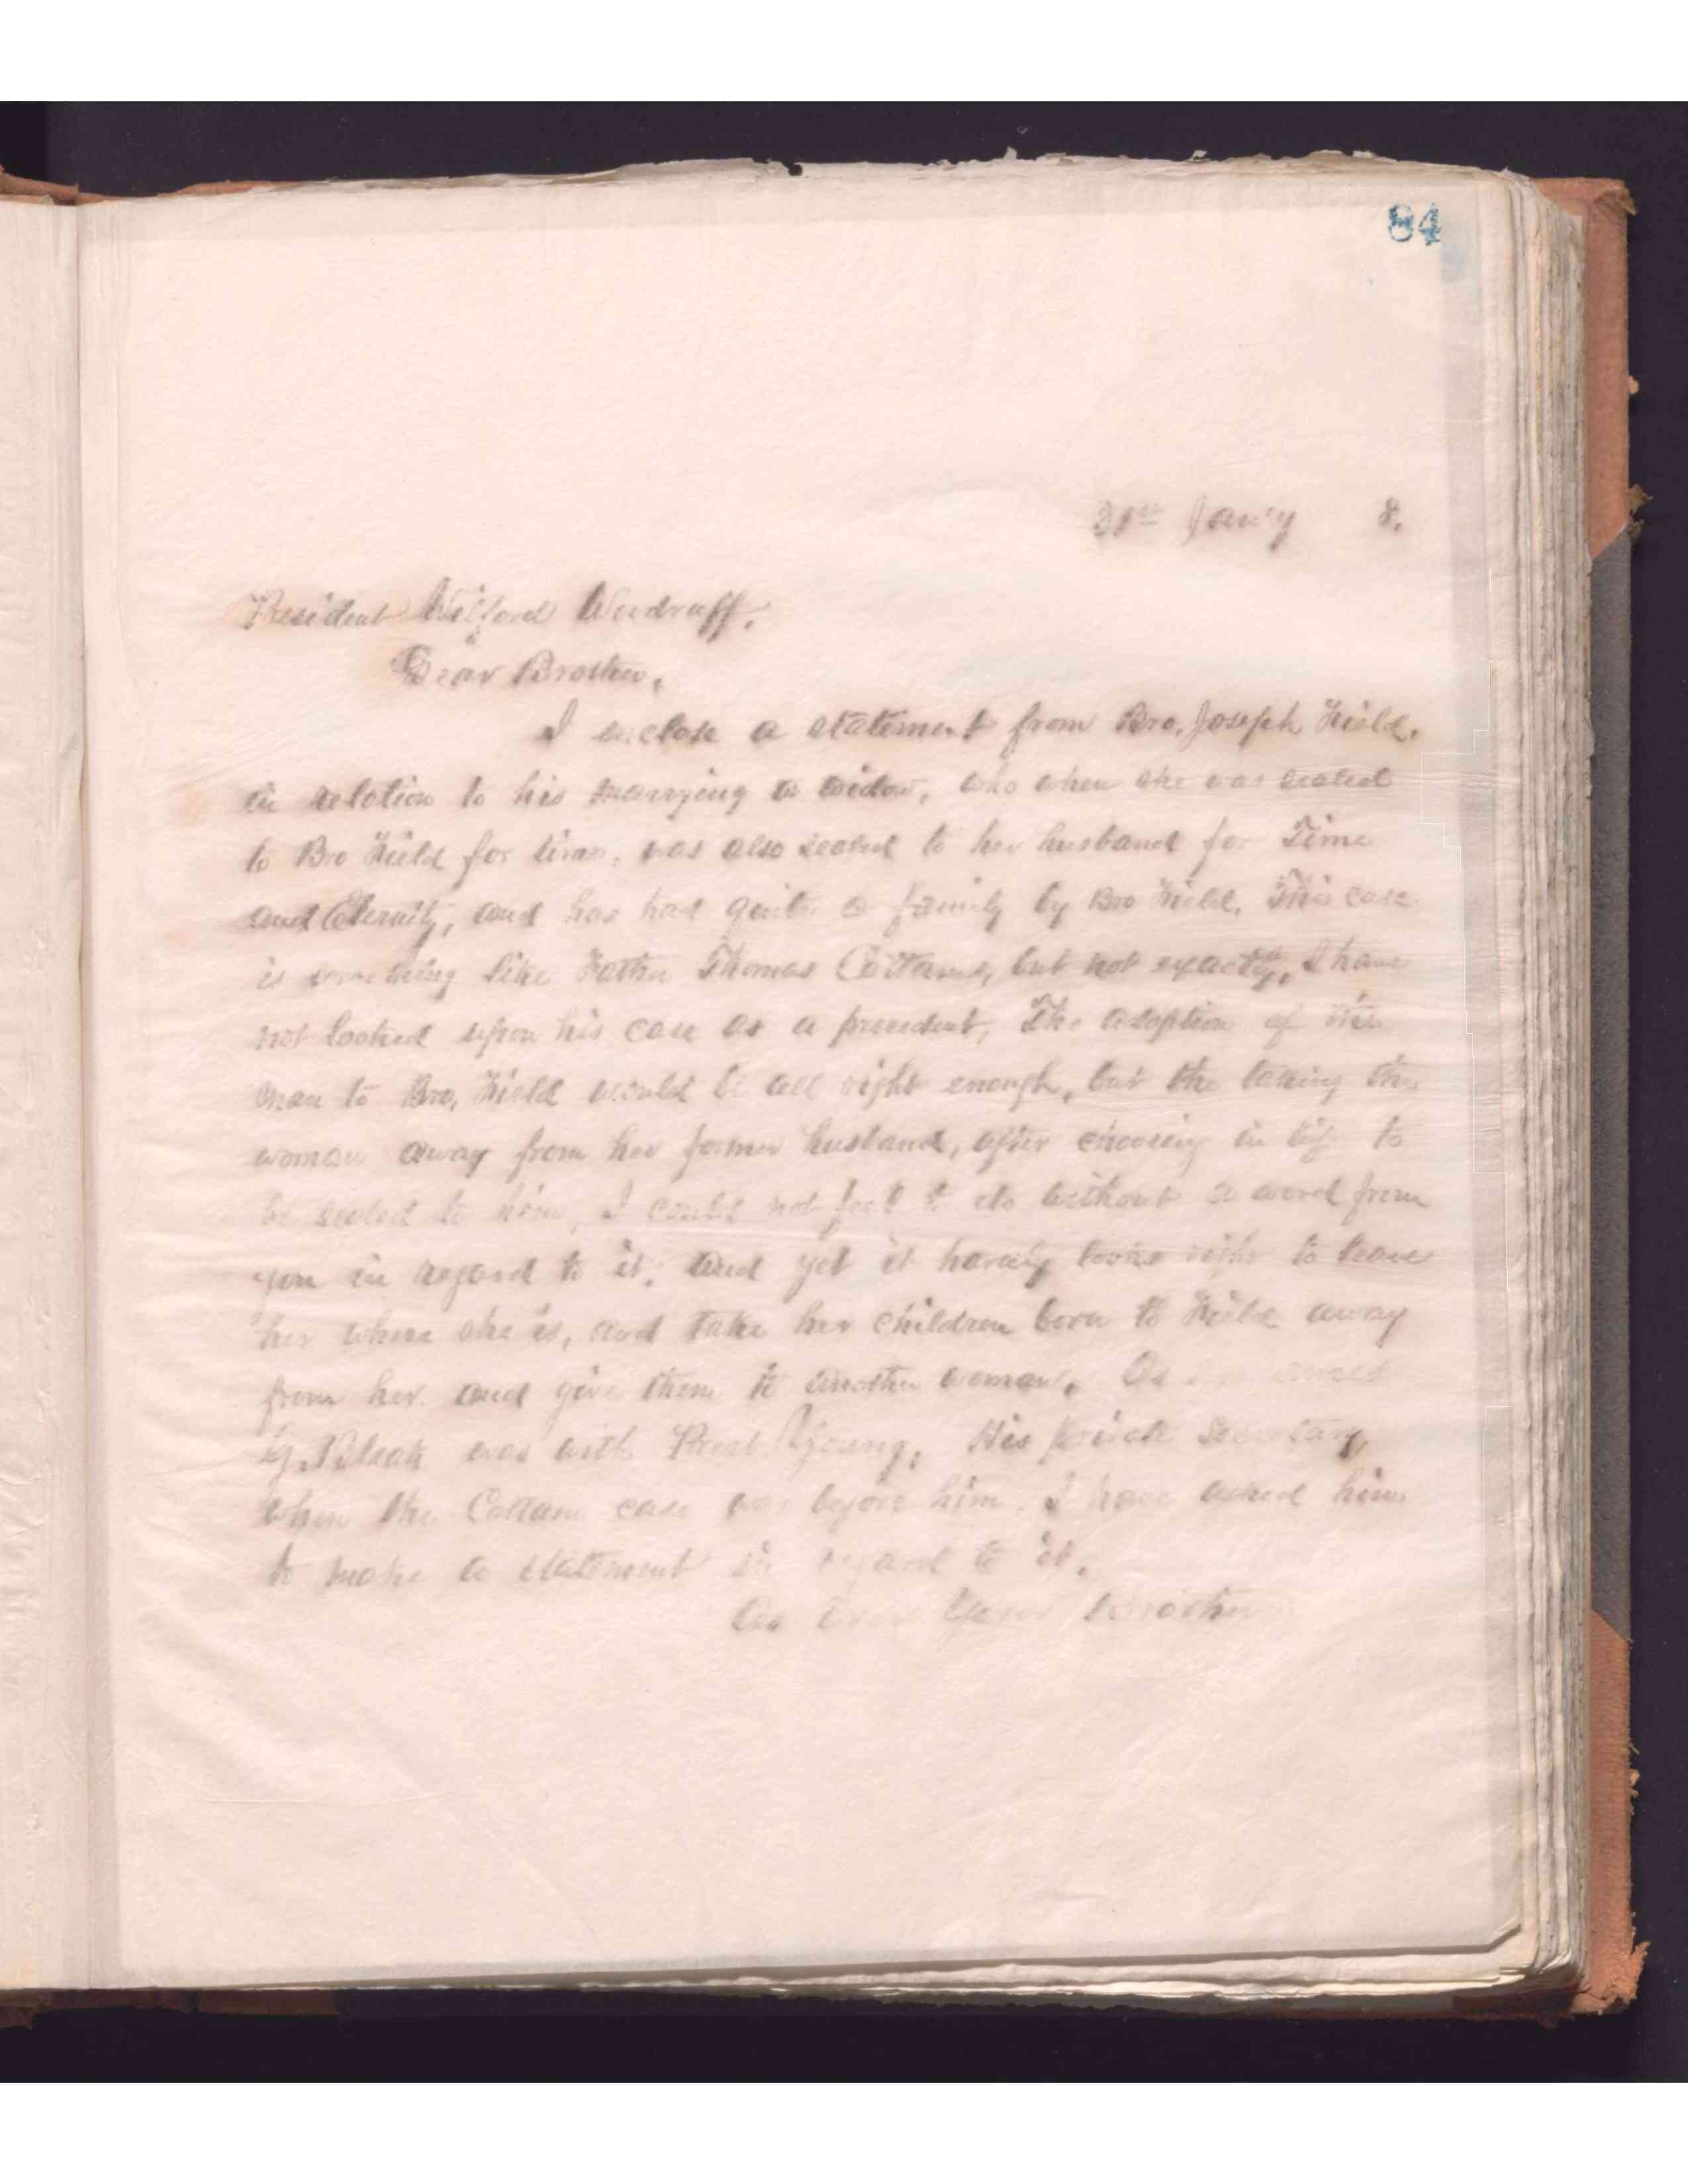 84
21st Jan'y 8.
President Wilford Woodruff,
Dear Brother,
I enclose a statement from Bro. Joseph Field,
in relation to his marrying a widow, who when she was sealed
to Bro Field for time, was also sealed to her husband for Time
and Eternity, and has had quite a family by Bro Field. This case
is something like Father Thomas Cottams, but not exactly, I have
not looked upon his case as a precedent, The adoption of the
man to Bro, Field would be all right enough, but the taking the
woman away from her former husband, after choosing in life to
be sealed to him, I could not feel to do without a word from
you in regard to it, and yet it hardly looks right to leave
her where she is, and take her children born to Field away
from her and give them to another woman. As
G. Bleak was with Prest Young, His private Secretary,
when the Cottam case was before him, I have asked him
to make a statement in regard to it.
As Ever Your Brother